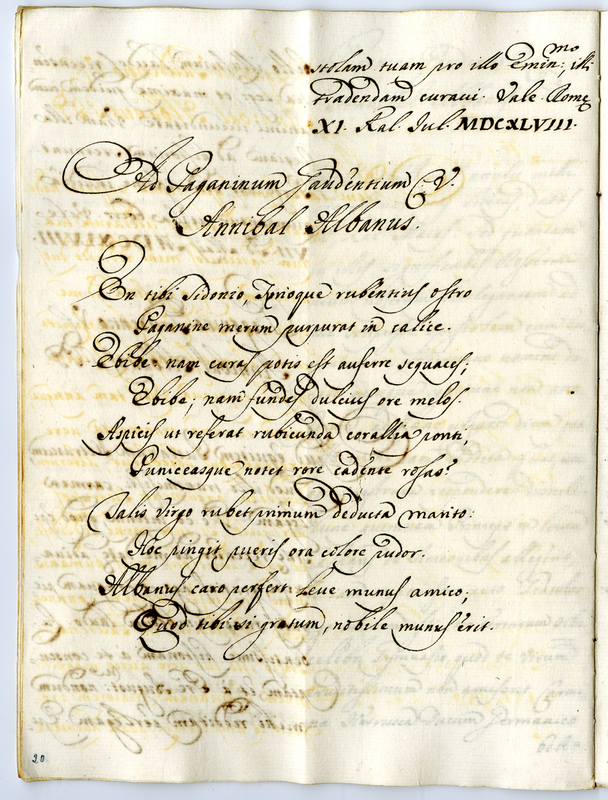 stolam tuam pro illo Emin:mo, illi
tradendam curavi. Vale. Romę
XI. Kal. Iul. MDCXLVIII.
Ad Paganinum Gaudentium C. V.
Annibal Albanus.
En tibi sidonio, Tyrioque rubentius ostro
Paganine merum purpurat in calice.
Ebibe: nam curas potis est auferre sequaces;
Ebibe; nam fundes dulcius ore melos.
Aspicis ut referat rubicunda corallia ponti,
Puniceasque notet rore cadente rosas?
Talis virgo rubet primum deducta marito:
Hoc pingit pueris ora colore pudor.
Albanus caro perfert leve munus amico;
Quod tibi si gratum, nobile munus erit.
20